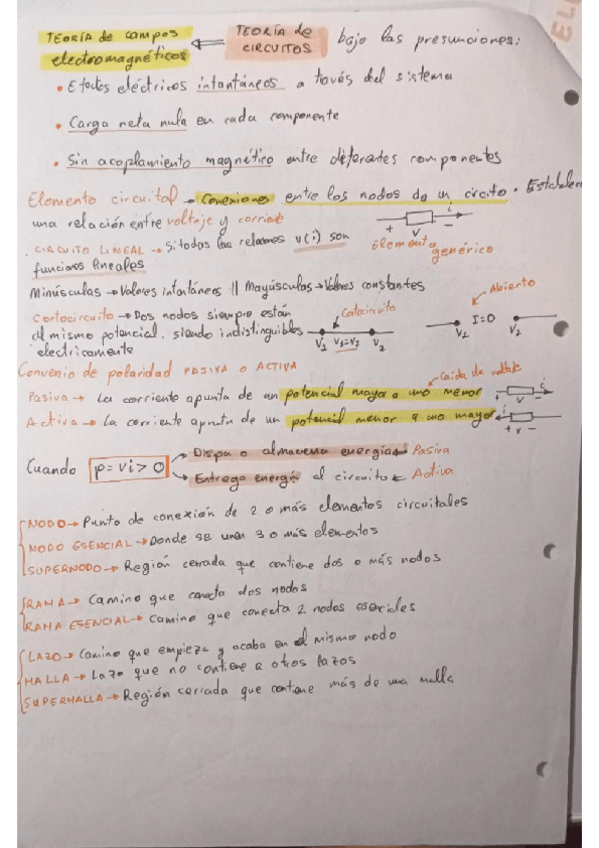 TEORÍA de campos electromagnéticos ⇐ TEORÍA de CIRCUITOS bajo las presunciones:
• Efectos eléctricos instantáneos a través del sistema
• Carga neta nula en cada componente
• Sin acoplamiento magnético entre diferentes componentes
Elemento circuital → Conexiones entre los nodos de un circito • Establece
una relación entre voltaje y corriente
+ v - i
Elemento genérico
• CIRCUITO LINEAL → Si todas las relaciones v(i) son
funciones lineales
Minúsculas → Valores instantáneos || Mayúsculas → Valores constantes
Cortocircuito → Dos nodos siempre están
al mismo potencial, siendo indistinguibles
electricamente
Cortocircuito
V1 V1=V2 V2
Abierto
V1 I=0 V2
Convenio de polaridad PASIVA O ACTIVA
Caída de voltaje
Pasiva → La corriente apunta de un potencial mayor a uno menor
+ v - i
Activa → La corriente apunta de un potencial menor a uno mayor
+ v - i
Cuando p=vi>0
→ Disipa o almacena energía ← Pasiva
→ Entrega energía al circuito ← Activa
NODO → Punto de conexión de 2 o más elementos circuitales
NODO ESENCIAL → Donde se unen 3 o más elementos
SUPERNODO → Región cerrada que contiene dos o más nodos
RAMA → Camino que conecta dos nodos
RAMA ESENCIAL → Camino que conecta 2 nodos esenciales
LAZO → Camino que empieza y acaba en el mismo nodo
MALLA → Lazo que no contiene a otros lazos
SUPERMALLA → Región cerrada que contiene más de una malla